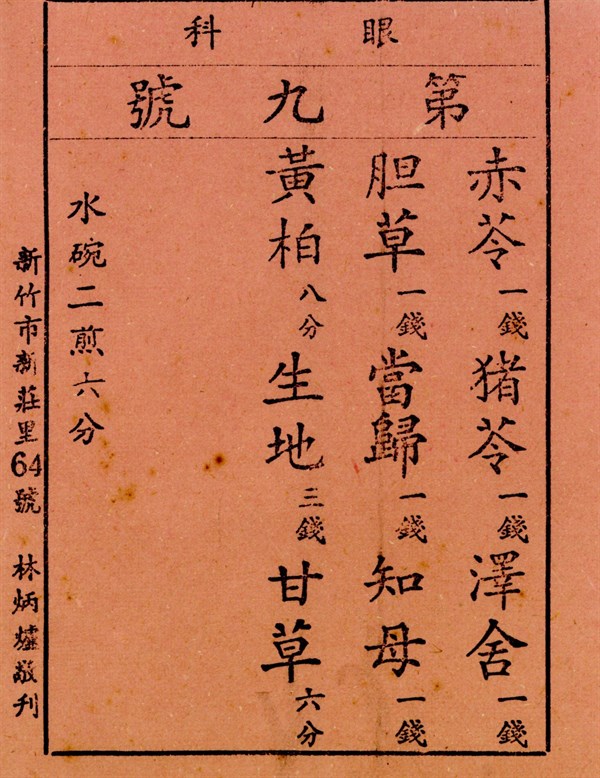 眼科
第九號
赤苓一錢 猪苓一錢 澤舍一錢
胆草一錢 當歸一錢 知母一錢
黃柏八分 生地三錢 甘草六分
水碗二煎六分
新竹市新莊里64號 林炳爐敬刊